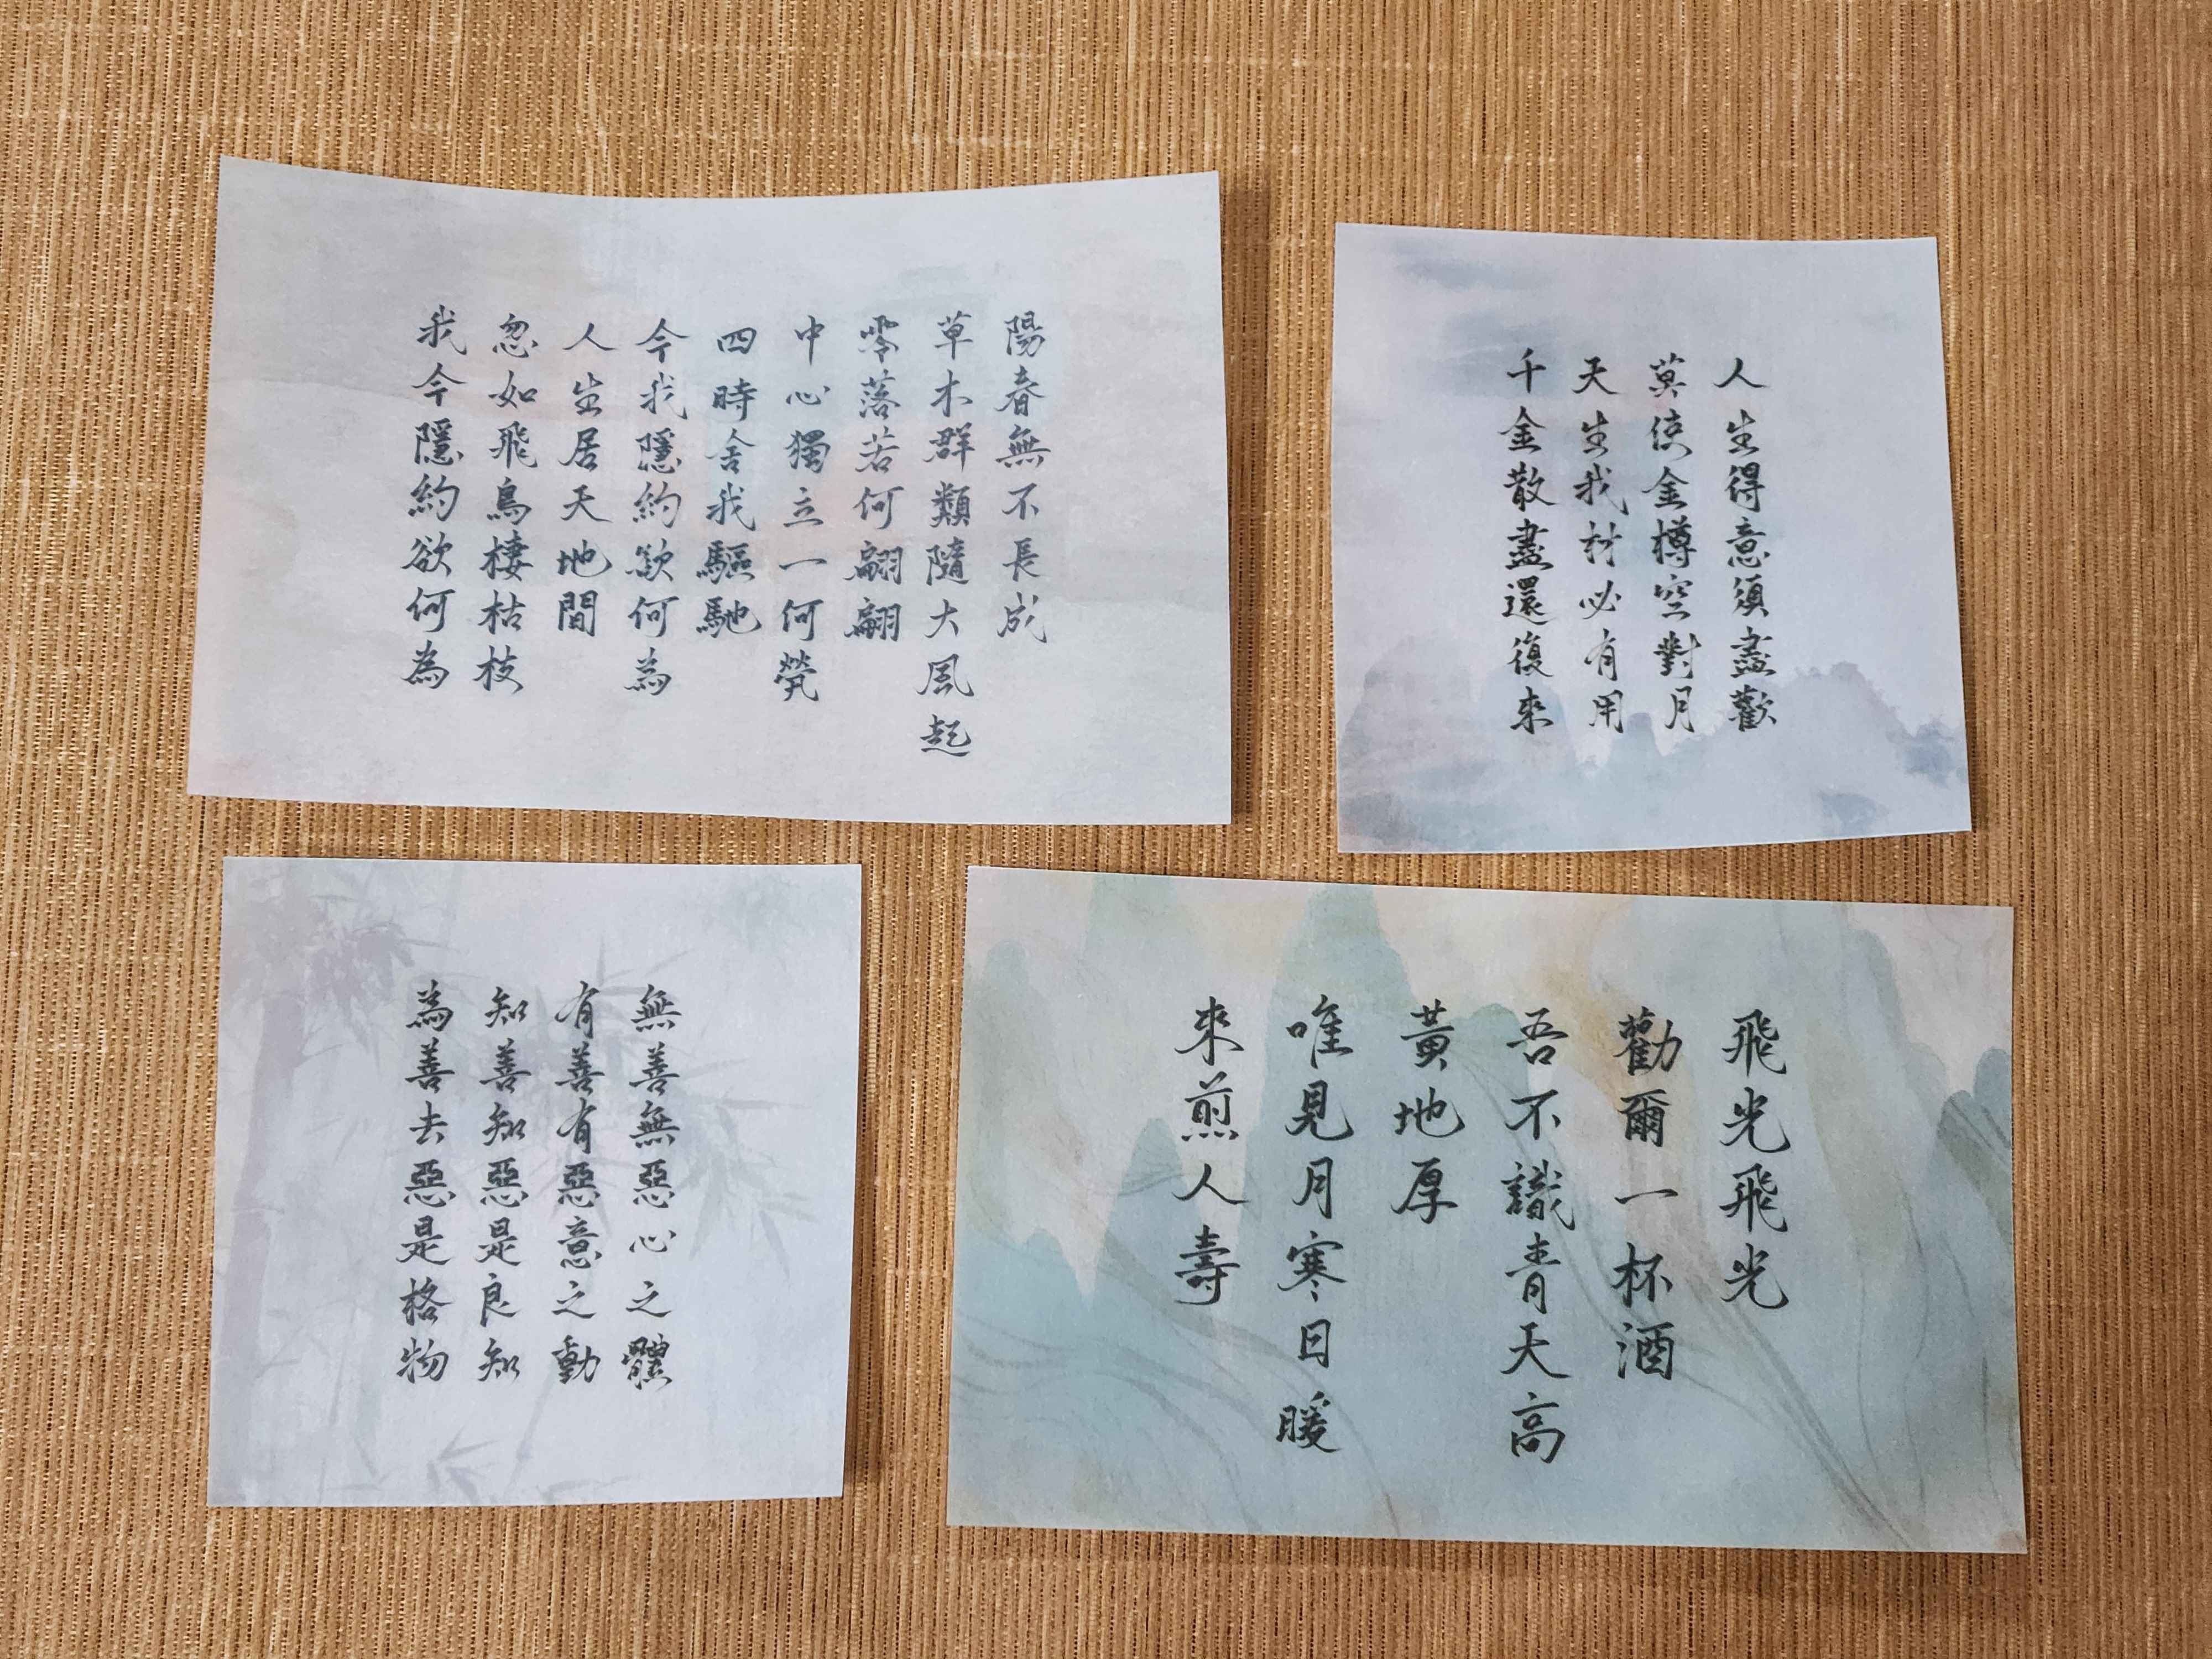 陽春無不長成
草木群類隨大風起
零落若何翩翩
中心獨立一何煢
四時舍我驅馳
今我隱約欲何為
人生居天地間
忽如飛鳥棲枯枝
我今隱約欲何為
人生得意須盡歡
莫使金樽空對月
天生我材必有用
千金散盡還復來
無善無惡心之體
有善有惡意之動
知善知惡是良知
為善去惡是格物
飛光飛光
勸爾一杯酒
吾不識青天高
黃地厚
唯見月寒日暖
來煎人壽